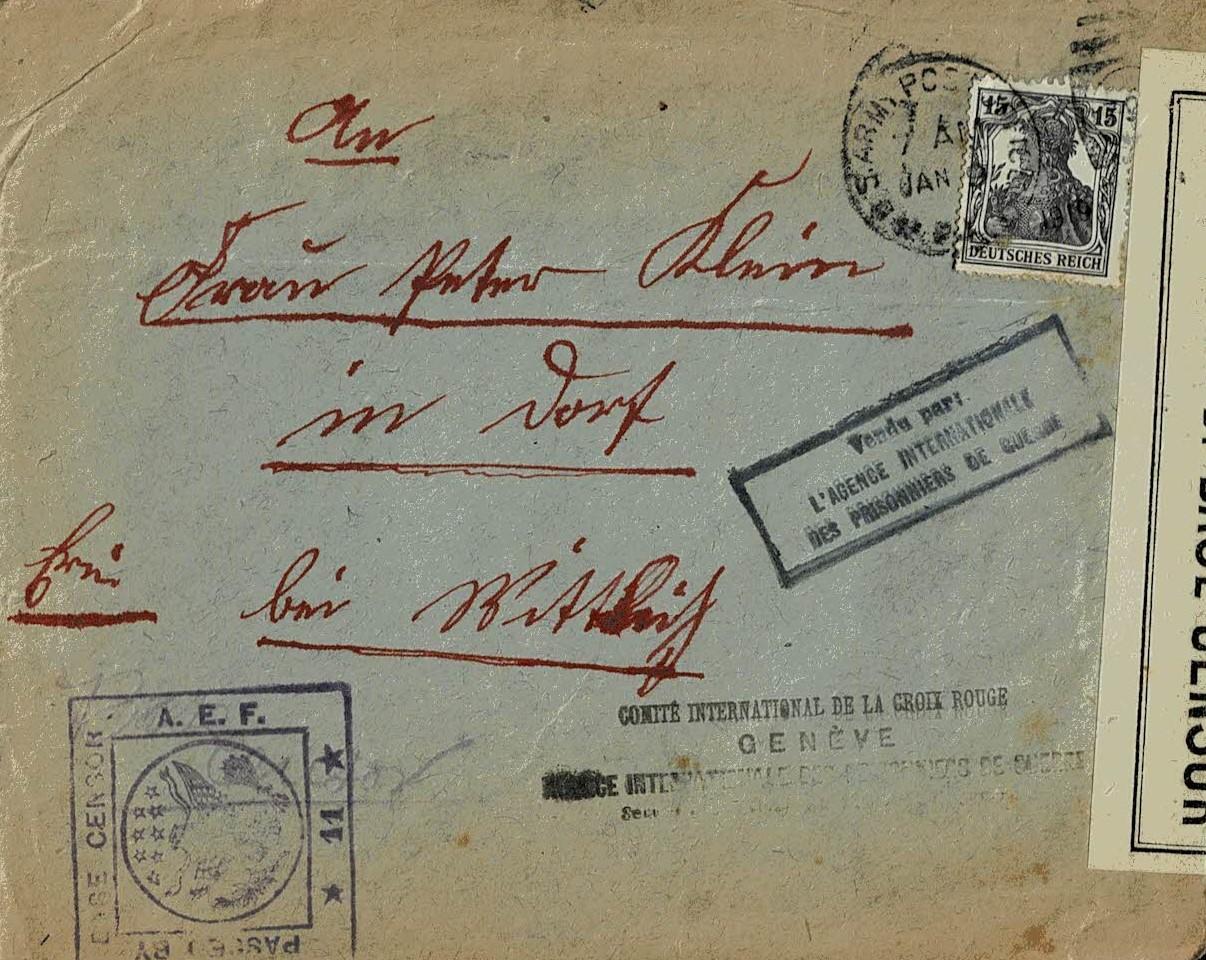 An
Frau Peter Klein
in Dorf
bei Wittlich
U.S. ARMY POST
7 AM
JAN
15 15
DEUTSCHES REICH
Vendu par:
L'AGENCE INTERNATIONALE
DES PRISONNIERS DE GUERRE
COMITÉ INTERNATIONAL DE LA CROIX ROUGE
GENÈVE
AGENCE INTERNATIONALE DES PRISONNIERS DE GUERRE
A. E. F.
BASE CENSOR
11
PASSED BY
BASE CENSOR